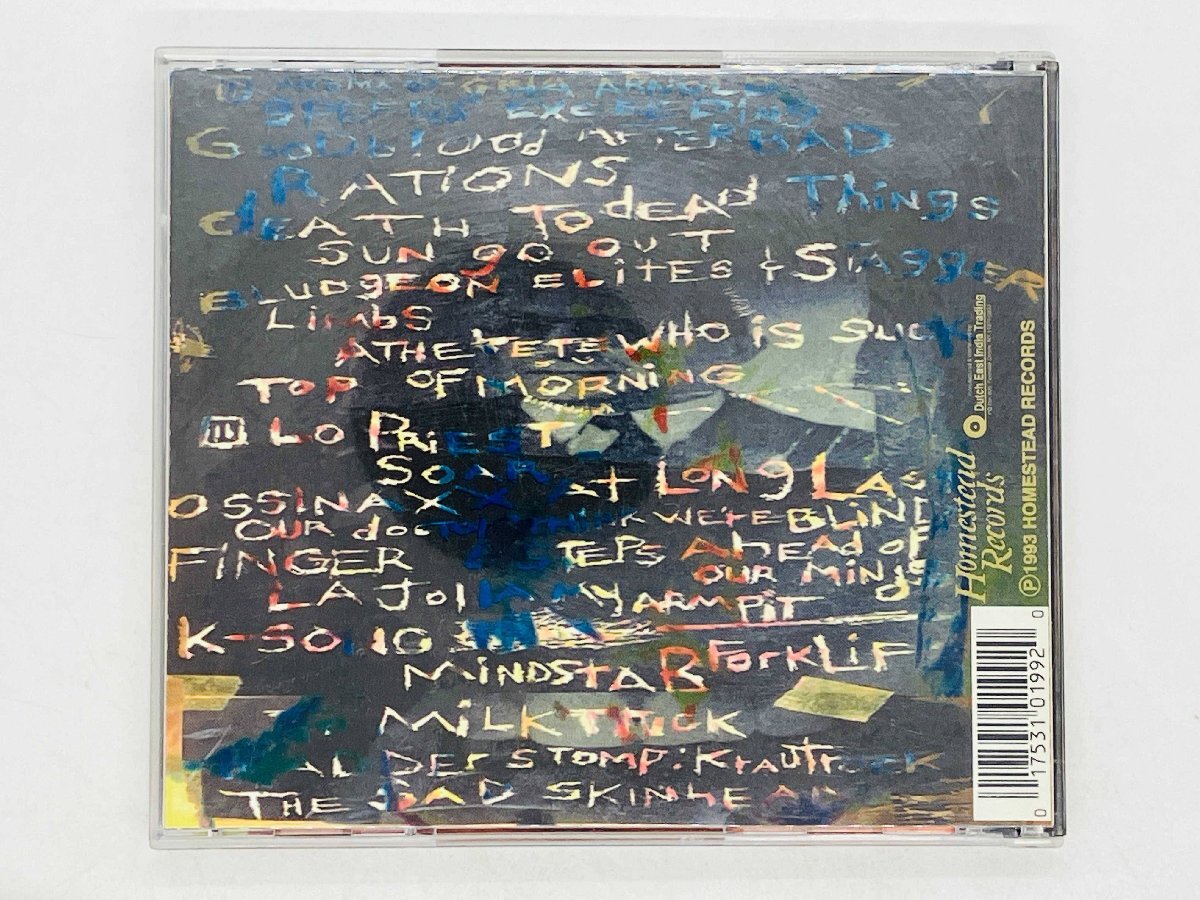 I AROMA OF GINA ARNOLD
SPEEDS EXCEEDING
G SOULFOOD AFTER BAD
RATIONS
dEATH TO dEAd Things
SUN go OUT
BLUdgEON ELiTES & STAggER
LimbS
ATHELETE WHO iS SUCK
TOP OF MORNiNG
II LO PRiEST
SOAR AT LONg LAS
OSSINAX
OUR WERE BLIN
FiNGER STEPS AhEAd OF
OUR MINd
LA JOl IN MY ARMPiT
K-SONG
FOrKLiF
MiNDSTAB
MiLKTRUCK
ALDER STOMP: KrAUTrOCK
THE SAD SKINHEAD
Homestead
Records
Dutch East India Trading
℗1993 HOMESTEAD RECORDS
0 17531 01992 0